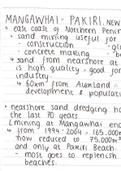 MANGAWHAI - PAKIRI, NEW
• east coast of Northern Penin
• sand mining useful for
- construction - gl
- concrete making - b
• sand from nearshore at
is high quality - good for
industry.
80km from Auckland -
development & populatio
• nearshore sand dredging ha
the last 70 years.
(mining at Mangawhai en
• from 1994-2004 - 165,000m
how reduced to 75,000m³
and only at Pakiri Beach
- most goes to replenish
beaches.